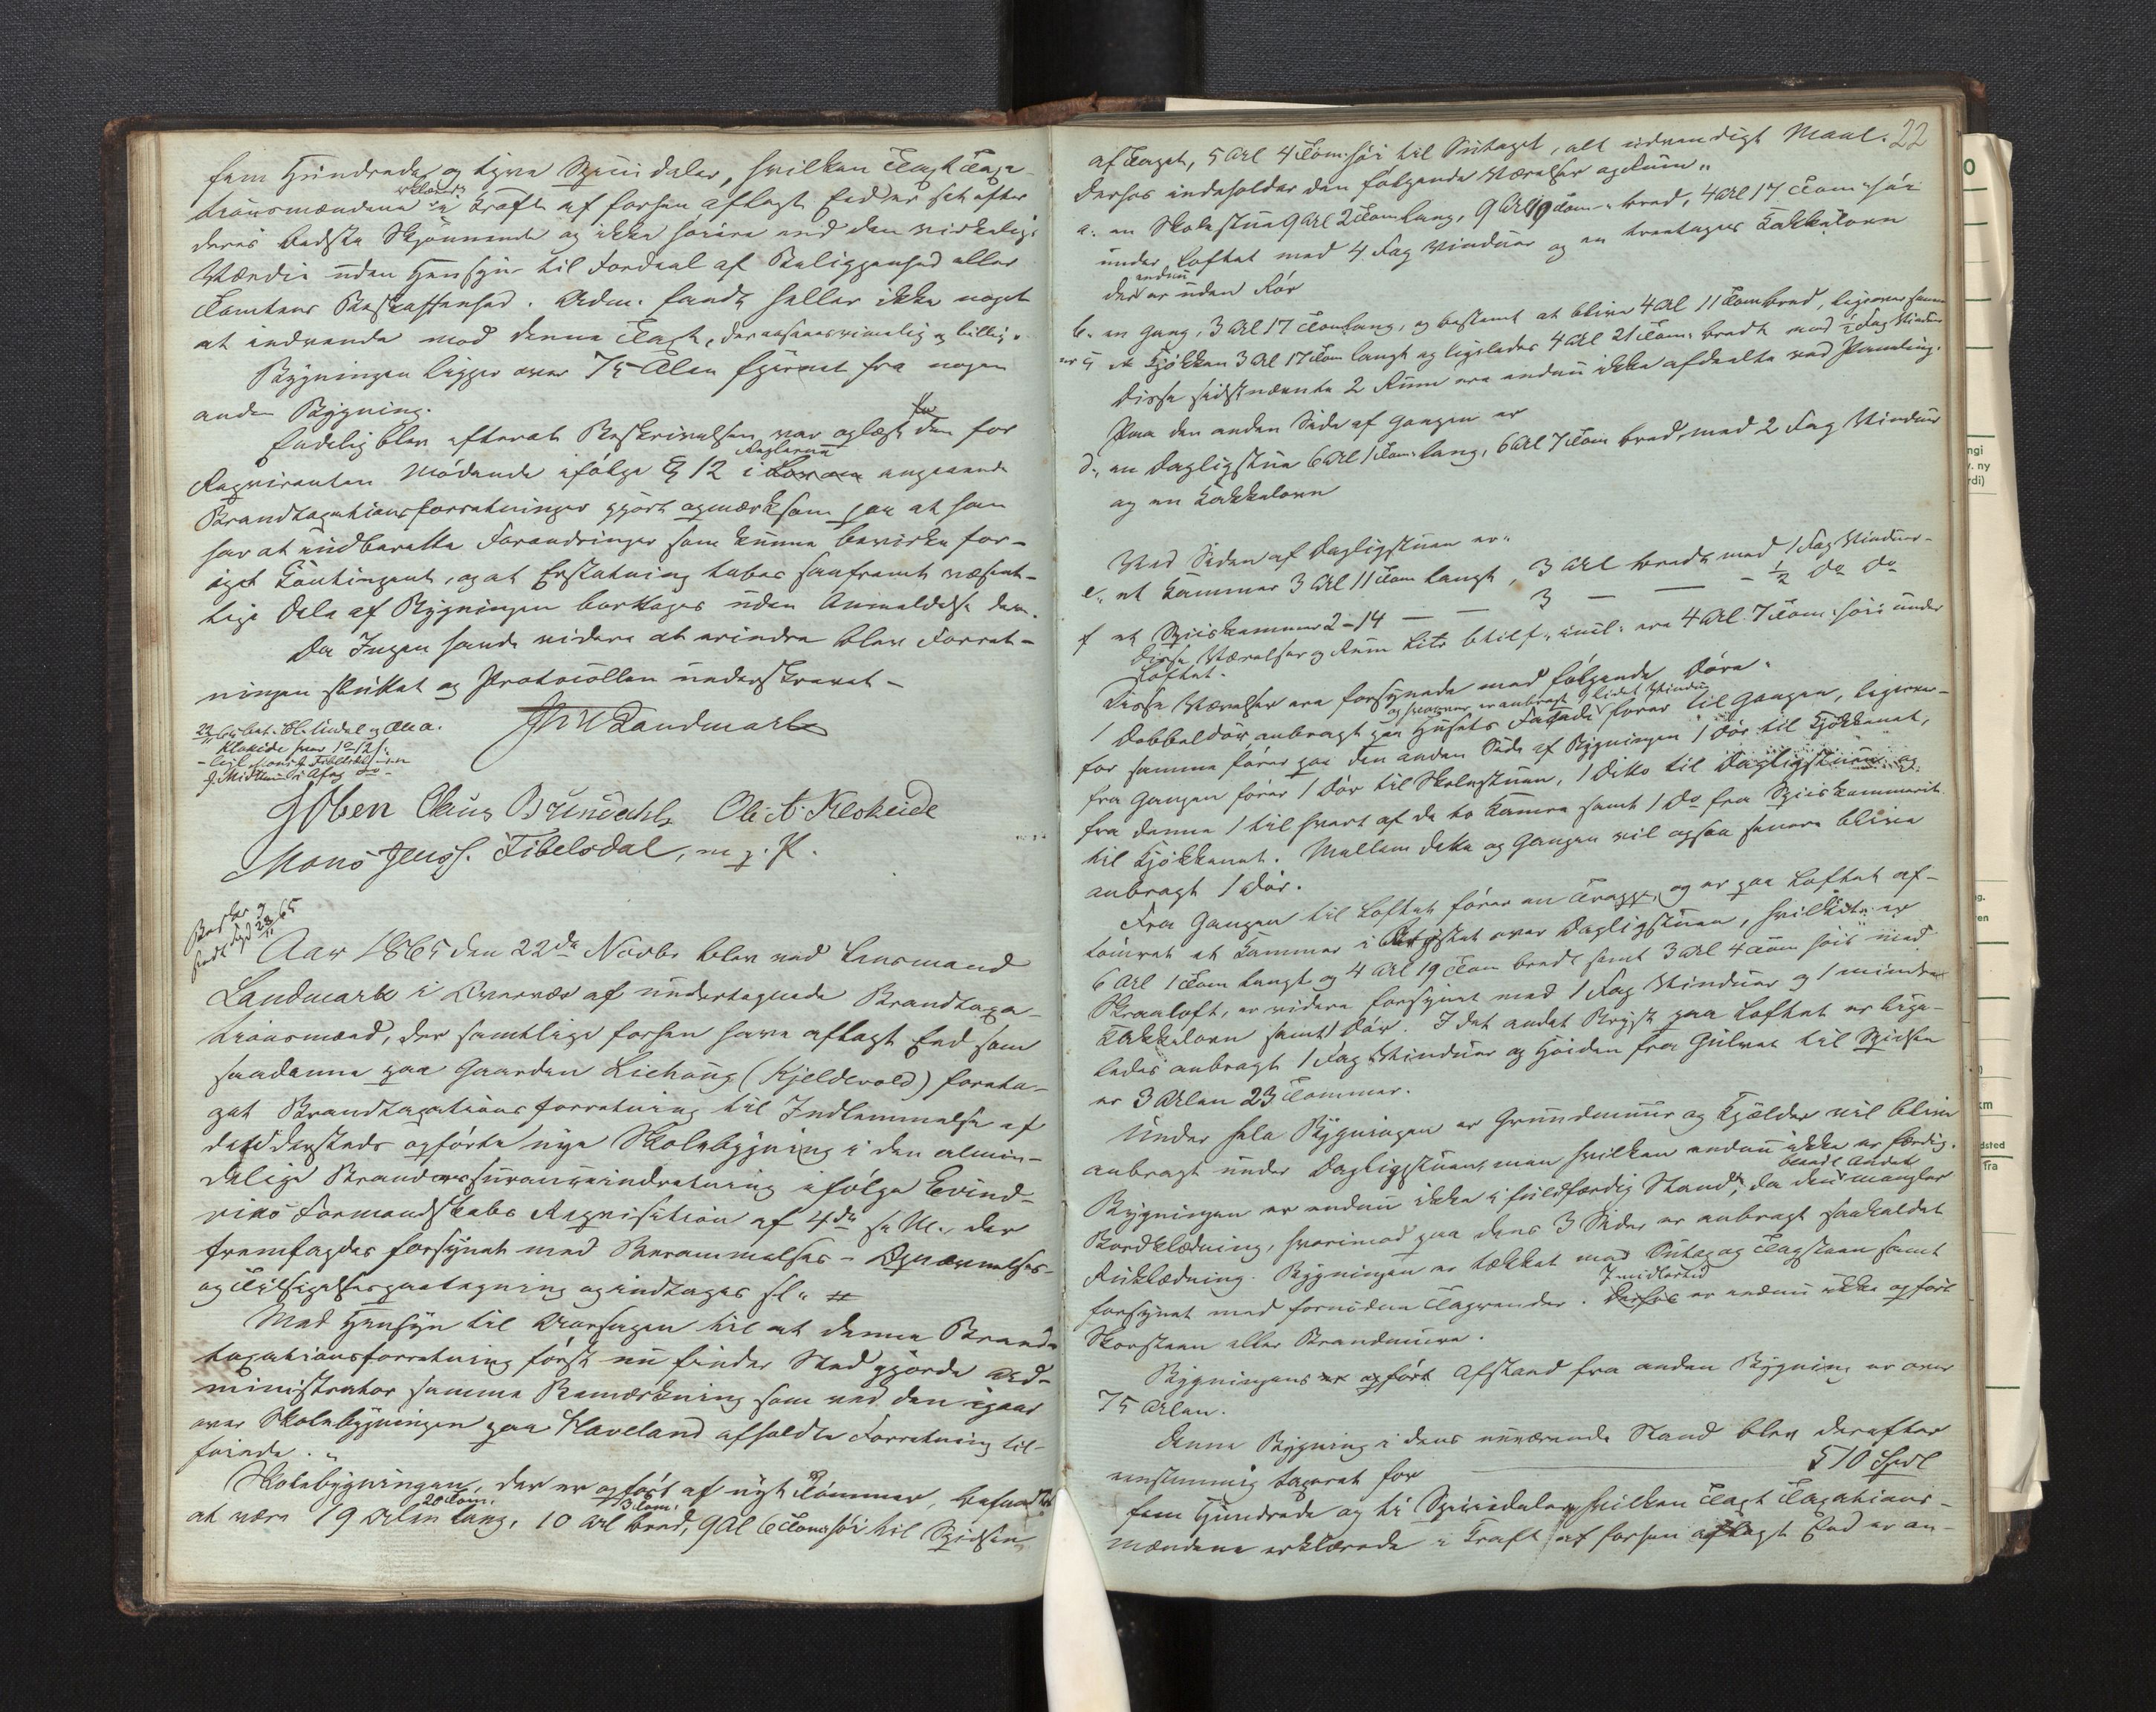 fem Hundrede og tyve Speciedaler, hvilken Taxt Taxa-
tionsmændene erklærede i Kraft af forhen aflagt Eed er sat efter
deres bedste Skjønnende og ikke høiere end den virkelige
Værdie uden Hensyn til Fordeel af Beliggenhed eller
Tomtens Beskaffenhed. Adm. fandt heller ikke noget
at indvende mod denne Taxt, der ansees rimelig og billig.
Bygningen ligger over 75 Alen fjernet fra nogen
anden Bygning.
Endelig blev efterat Beskrivelsen var oplæst den for
Reqvirenten Mødende ifølge § 12 i Reglerne angaaende
Brandtaxationsforretninger gjort opmærksom paa at han
har at indberette Forandringer som kunne bevirke for-
øget Contingent, og at Erstatning tabes saafremt væsent-
lige Dele af Bygningen borttages uden Anmeldelse derom.
Da Ingen havde videre at erindre blev Forret-
ningen sluttet og Protocollen underskrevet –
Landmark
J Oben Claus Brundahl Ole A. Kleiheide
Mons Jenss. Fibelsdal, m. p. P.
Aar 1865 den 22de Novbr blev ved Lensmand
Landmark i Overvær af undertegnede Brandtaxa-
tionsmænd, der samtlige forhen have aflagt Eed som
saadanne paa Gaarden Liehoug (Kjeldevold) foreta-
get Brandtaxationsforretning til Indlemmelse af
det dersteds opførte nye Skolebygning i den almin-
delige Brandassuranceindretning ifølge Evind-
vigs Formandskabs Reqvisition af 4de s. M., der
fremlagdes forsynet med Berammelses- Opnævnelses-
og Tilsigelsespaategning og indtages sl. #
Med Hensyn til Aarsagen til at denne Brand-
taxationsforretning først nu finder Sted gjorde Ad-
ministrator samme Bemærkning som ved den igaar
over Skolebygningen paa Haveland afholdte Forretning til-
førte.
Skolebygningen, der er opført af nyt Tømmer, befandtes
at være 19 Alen 20 Tom. lang, 10 Al 3 Tom. bred, 9 Al 6 Tom. høi til Spidsen
22
af Taget, 5 Al 4 Tom. høi til Sutaget, alt udvendigt Maal.
Derhos indeholder den følgende Værelser og Rum:
a. en Skolestue 9 Al 2 Tom lang, 9 Al 19 Tom. bred, 4 Al 17 Tom. høi
under Loftet med 4 Fag Vinduer og en treetages Kakkelovn
der endnu er uden Rør
b. en Gang, 3 Al 17 Tom lang, og bestemt at blive 4 Al 11 Tom bred, ligeover samme
er c, et Kjøkken 3 Al 17 Tom langt og ligeledes 4 Al 21 Tom. bredt med ½ Fag Vindue
Disse sidstnævnte 2 Rum ere endnu ikke afdeelte ved Paneling.
Paa den anden Side af Gangen er
d., en Dagligstue 6 Al 1 Tom. lang, 6 Al 7 Tom bred, med 2 Fag Vinduer
og en Kakkelovn
Ved Siden af Dagligstuen er:
e., et Kammer 3 Al 11 Tom langt, 3 Al bredt med 1 Fag Vinduer
f et Spiiskammer 2 – 14 — — 3 — — – ½ do do
Disse Værelser og Rum Litr b til f, incl: ere 4 Al 7 Tom. høie under
Loftet.
Disse Værelser ere forsynede med følgende Døre:
1 Dobbeldør anbragt paa Husets Façade og hvorover er anbragt 1 lidet Vindue fører til Gangen, ligeover-
for samme fører paa den anden Side af Bygningen 1 Dør til Kjøkkenet,
fra Gangen fører 1 Dør til Skolestuen, 1 Ditto til Dagligstuen og
fra denne 1 til hvert af de to Kamre samt 1 Do fra Spiiskammeret
til Kjøkkenet. Mellem dette og Gangen vil ogsaa senere blive
anbragt 1 Dør.
Fra Gangen til Loftet fører en Trappe, og er paa Loftet af-
tømret et Kammer i Brystet over Dagligstuen, hvilket er
6 Al 1 Tom langt og 4 Al 19 Tom bredt samt 3 Al 4 Tom høit med
Skraaloft, er videre forsynet med 1 Fag Vinduer og 1 mindre
Kakkelovn samt 1 Dør. I det andet Bryst paa Loftet er lige-
ledes anbragt 1 Fag Vinduer og Høiden fra Gulvet til Spidsen
er 3 Alen 23 Tommer.
Under hele Bygningen er Grundmuur og Kjelder vil blive
anbragt under Dagligstuen, men hvilken endnu ikke er færdig.
Bygningen er endnu ikke i fuldfærdig Stand, da den blandt Andet mangler
Bordklædning, hvorimod paa dens 3 Sider er anbragt saakaldet
Ruklædning. Bygningen er tækket med Sutag og Tagsteen samt
forsynet med fornødne Tagrender. Imidlertid er endnu ikke opført
Skorsteen eller Brandmure.
Bygningens er opført Afstand fra anden Bygning er over
75 Alen.
Denne Bygning i dens nuværende Stand blev derefter
eenstemmig taxeret for — 510 Spdl
fem Hundrede og ti Speciedaler, hvilken Taxt Taxations-
mændene erklærede i Kraft af forhen aflagt Eed er an-